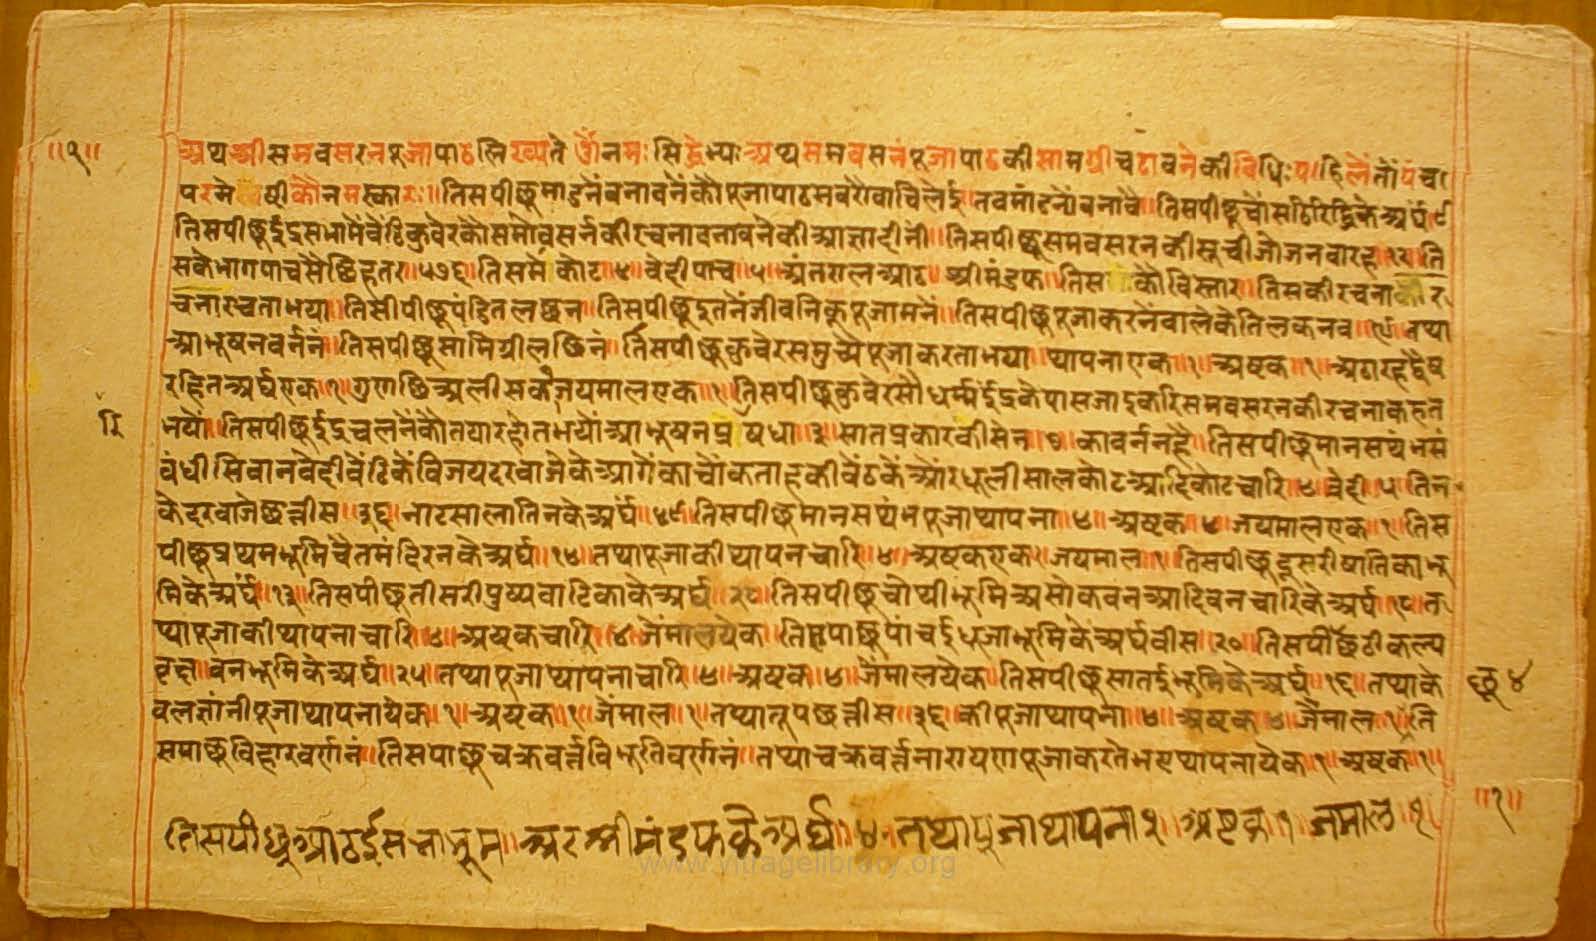 ॥१॥ अथ श्री समवसरन पूजा पाठ लिख्यते ॐ नमः सिद्धेभ्यः अथ समवसर्न पूजा पाठ की सामग्री चढावने की विधिः पहिलें तों पंच
परमे ष्टी कौ नमस्कारः॥ तिस पीछू बनावनें कौ पूजा पाठ तिस पीछू चौसठि रिद्धि के अर्घ
तिस पीछू इंद्र सभा में बैठि कुवेर कौ समोवसर्न की रचना बनावने की आज्ञा दीनी॥ तिस पीछू समवसरन की सूची जोजन वारह॥१२॥ ति
सके भाग पाच सै छिहतर॥५७६॥ तिस मे कोट॥४॥ वेदी पाच॥५॥ अंतराल आठ॥ श्री मंडफ॥ तिस कौ विस्तार॥ तिस की रचना
चनार चता भया॥ तिसी पीछू पंडित लछन॥ तिस पीछू पूजा करनें वाले के तिलक नव॥९॥ तथा
आभूषन वर्ननं॥ तिस पीछू सामिग्री लछिनं॥ तिस पीछू कुवेर समुच्यै पूजा करता भया॥ थापना एक॥१॥ अष्टक॥१॥ अठारह दोष
रहित अर्घ एक॥१॥ गुण छिआलीस कौ जयमाल एक॥१॥ तिस पीछू कुवेर सौधर्म्म इंद्र के पास जाइ करि समवसरन की रचना कहत
रि भयौ॥ तिस पीछू इंद्र चलनें कौ तयार होत भयौ आभूषन सात प्रकार की सेन॥७॥ का वर्नन है॥ तिस पीछू मानस थंभ सं
वंधी सिवान वेदी बैठिकें विजय दरवाजे के आगें का चौंक ताह की बैंठकें और धूली साल कोट आदि कोट च्यारि॥४॥ वेदी॥५॥ तिन
के दरवाजे छत्तीस॥३६॥ नाटसाला तिन के अर्घ॥ तिस पीछू मानस थंभ पूजा थापना॥४॥ अष्टक॥४॥ जयमाल एक॥१॥ तिस
पीछू प्रथम भूमि चैत मंदिरन के अर्घ॥१४॥ तथा पूजा की थापन चारि॥४॥ अष्टक एक॥ जयमाल॥१॥ तिस पीछू दूसरी षातिका भू
मि के अर्घ॥१३॥ तिस पीछू तीसरी पुष्प वाटिका के अर्घ॥ तिस पीछू चोथी भूमि असोक वन आदि वन चारि के अर्घ॥ त
था पूजा की थापना चारि॥४॥ अष्टक चारि॥४॥ जैमाल येक॥ तिस पाछू पांचई धुजा भूमि के अर्घ वीस॥२०॥ तिस पीछै छठी कल्प
वृक्ष॥ वन भूमि के अर्घ॥२५॥ तथा पूजा थापना चारि॥४॥ अष्टक॥४॥ जैमाल येक॥ तिस पीछू सातई भूमि के अर्घ॥१६॥ तथा के छू ४
वल ज्ञांनी पूजा थापना येक॥१॥ अष्टक॥१॥ जैमाल॥१॥ तथा तूप छत्तीस॥३६॥ की पूजा थापना॥४॥ अष्टक॥४॥ जैमाल॥१॥ ति
स पाछू विहार वर्णनं॥ तिस पाछू चक्रवर्त्त विभूति वर्णनं॥ तथा चक्रवर्त्त नारायण पूजा करते भए थापना येक॥१॥ अष्टक॥१॥
तिस पीछू आठई सभा भूम॥ अर श्री मंडफ के अर्घ॥४॥ तथा पूजा थापना १॥ अष्टक १॥ जमाल॥१॥ ॥१॥
www.vitragelibrary.org